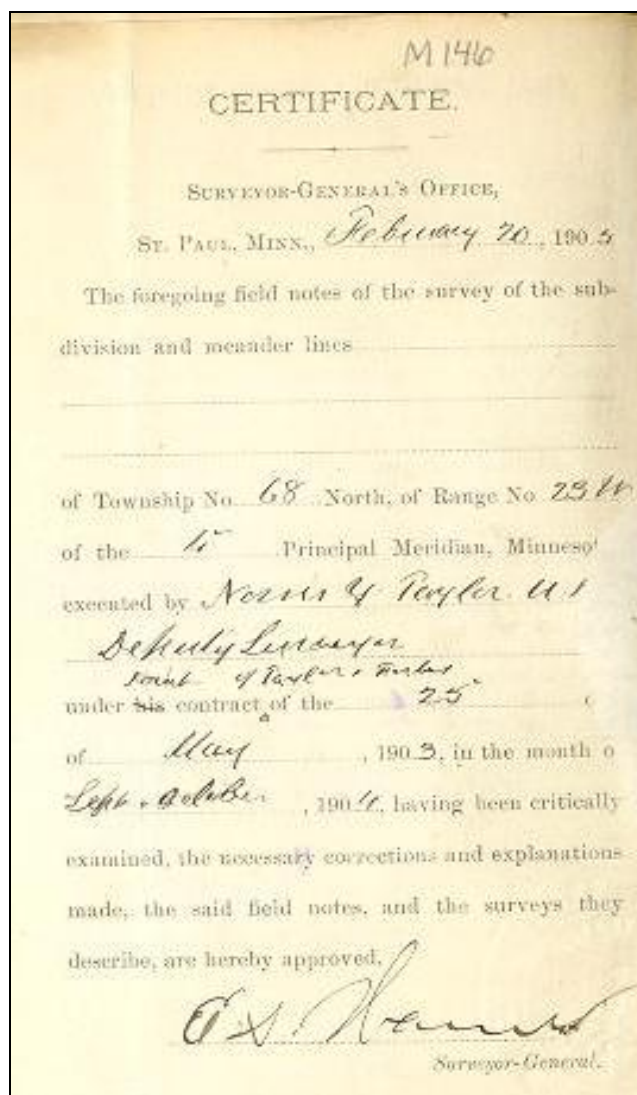 M 146
CERTIFICATE.
SURVEYOR-GENERAL'S OFFICE,
ST. PAUL, MINN., February 20, 1905
The foregoing field notes of the survey of the sub-
division and meander lines
of Township No. 68 North, of Range No. 23 W
of the Principal Meridian, Minnesot
executed by Norris Y Taylor U.S
Deputy Surveyor
joint of Taylor & Forbes
under his contract of the 25
of May, 1903, in the month o
Sept & October, 1904, having been critically
examined, the necessary corrections and explanations
made, the said field notes, and the surveys they
describe, are hereby approved.
Surveyor-General.